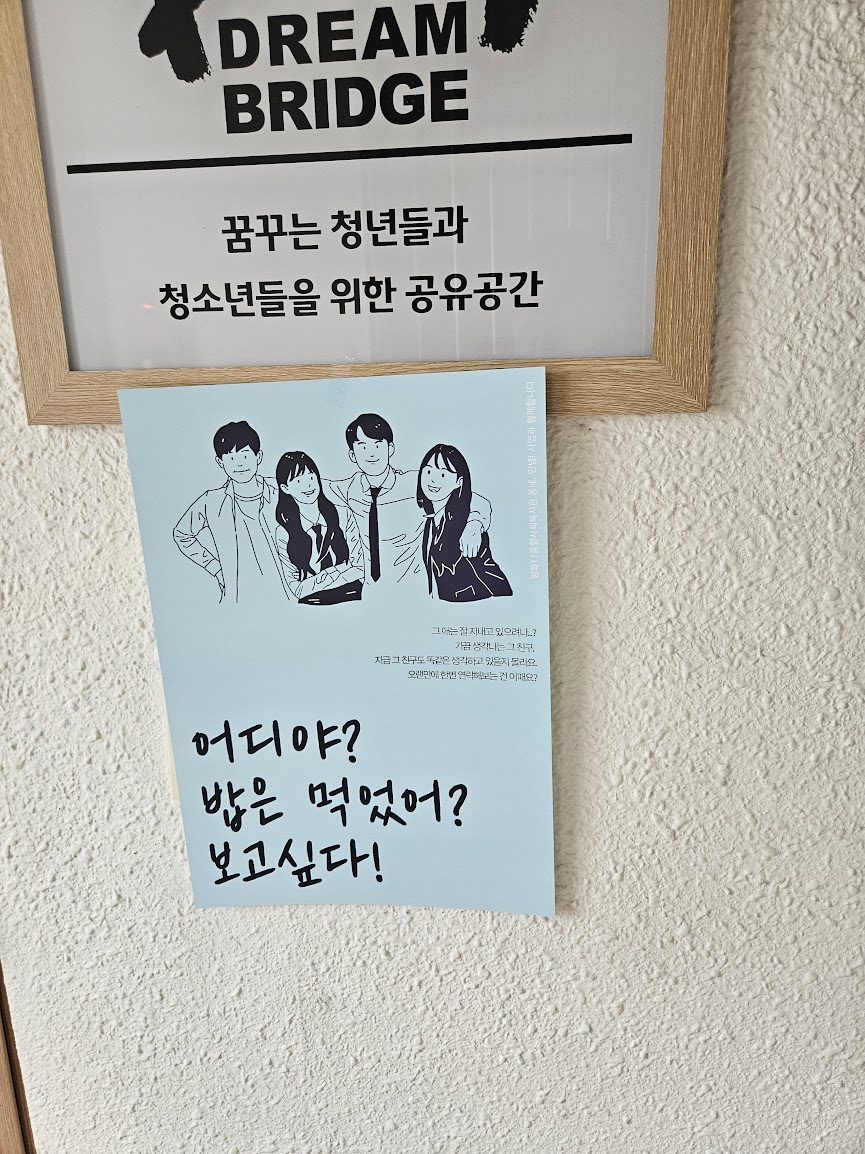 DREAM
BRIDGE
꿈꾸는 청년들과
청소년들을 위한 공유공간
그 애는 잘 지내고 있으려나...?
가끔 생각나는 그 친구,
지금 그 친구도 똑같은 생각하고 있을지 몰라요.
오랜만에 한번 연락해보는 건 어때요?
어디야?
밥은 먹었어?
보고싶다!